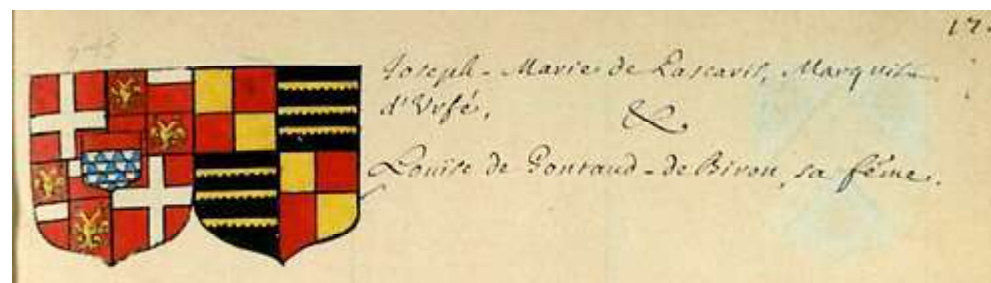 17.
Joseph-Marie de Lascaris, Marquis
d'Urfé,
&
Louïse de Gontaud-de Biron, sa féme.